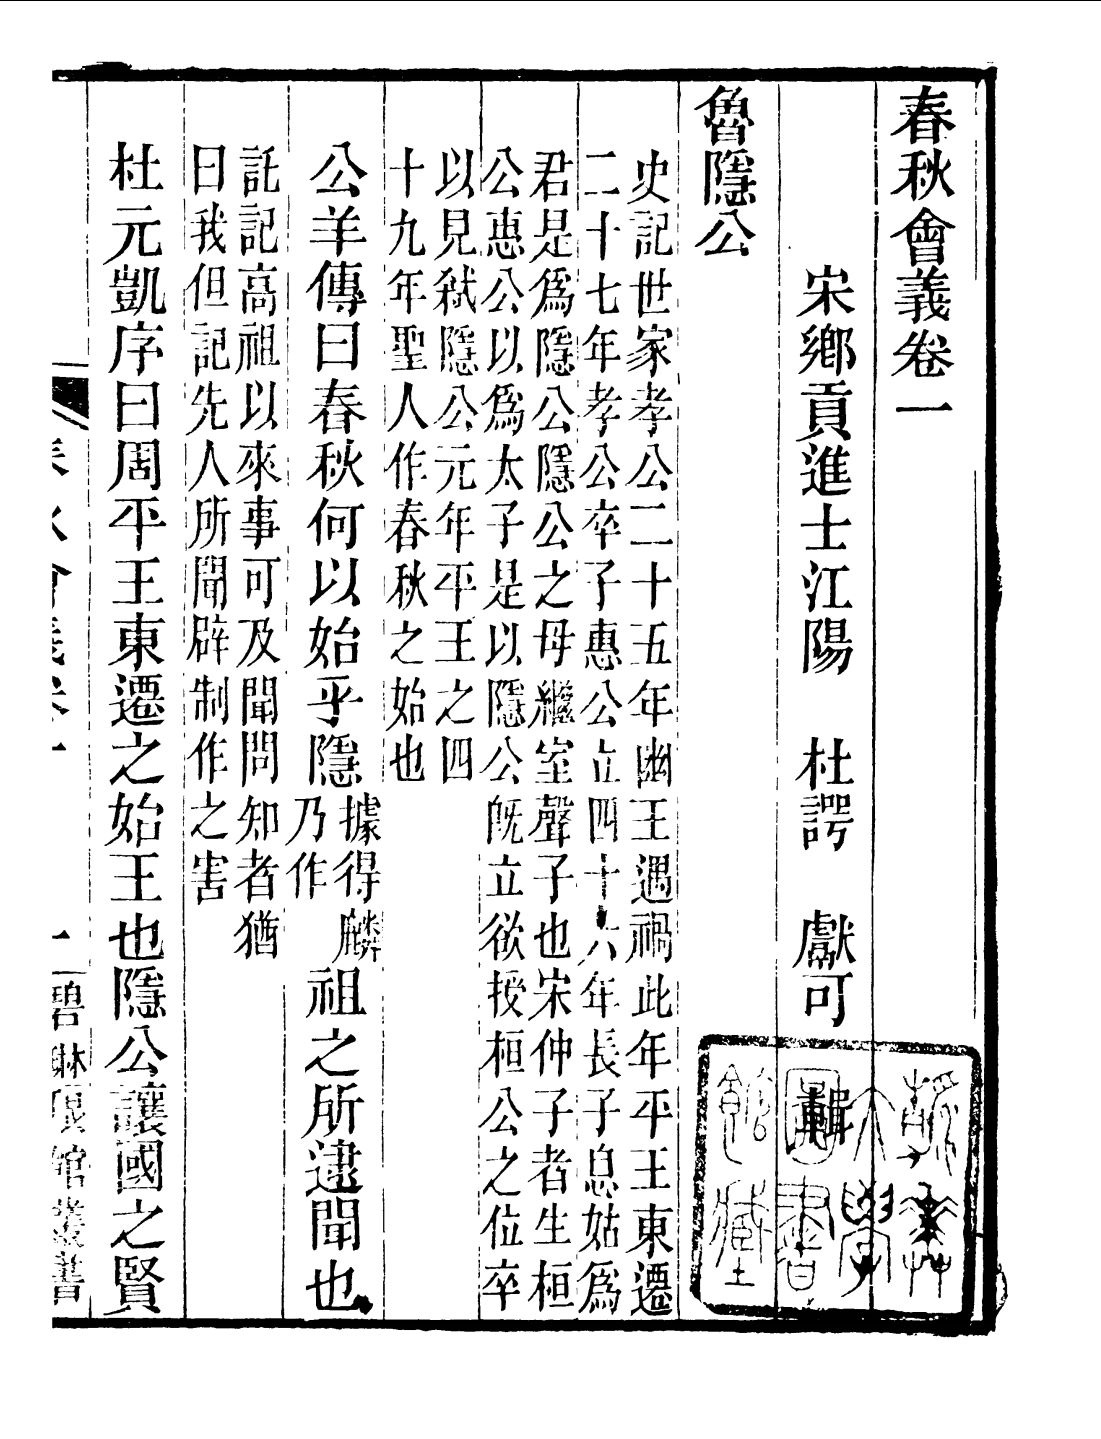 春秋會義卷一
宋鄉貢進士江陽　杜諤　獻可　輯
魯隱公
史記世家孝公二十五年幽王遇禍此年平王東遷
二十七年孝公卒子惠公立四十六年長子息姑爲
君是爲隱公隱公之母繼室聲子也宋仲子者生桓
公惠公以爲太子是以隱公旣立欲授桓公之位卒
以見弑隱公元年平王之四
十九年聖人作春秋之始也
公羊傳曰春秋何以始乎隱據得麟乃作祖之所逮聞也
託記高祖以來事可及聞問知者猶
曰我但記先人所聞辟制作之害
杜元凱序曰周平王東遷之始王也隱公讓國之賢
春秋會義卷一　一　碧琳琅館叢書
大學圖書館藏